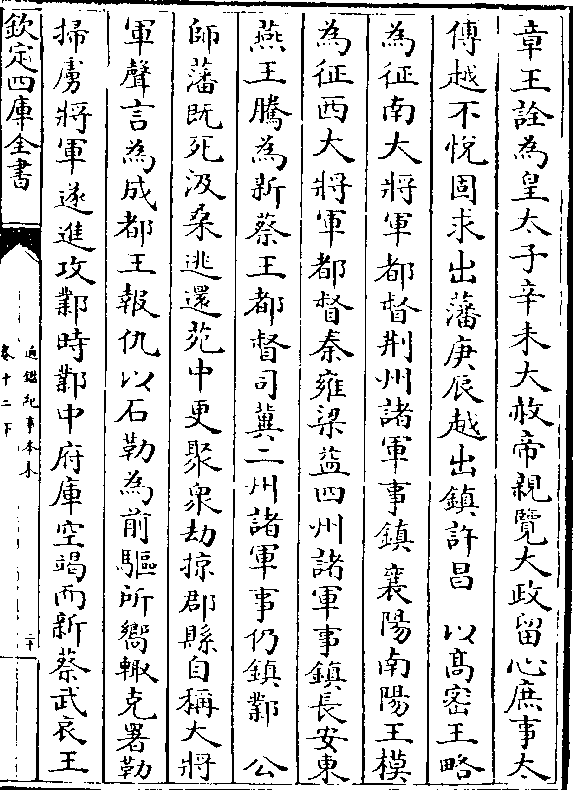 章王詮為皇太子辛未大赦帝親覽大政留心庶事太
傅越不悅固求出藩庚辰越出鎮許昌　以髙密王略
為征南大將軍都督荆州諸軍事鎮襄陽南陽王模
為征西大將軍都督秦雍梁益四州諸軍事鎮長安東
燕王騰為新蔡王都督司冀二州諸軍事仍鎮鄴　公
師藩既死汲桑逃還苑中更聚衆劫掠郡縣自稱大將
軍聲言為成都王報仇以石勒為前驅所嚮輙克署勒
掃虜將軍遂進攻鄴時鄴中府庫空竭而新蔡武哀王
欽定四庫全書
通鑑紀事本末
卷十二下
二十